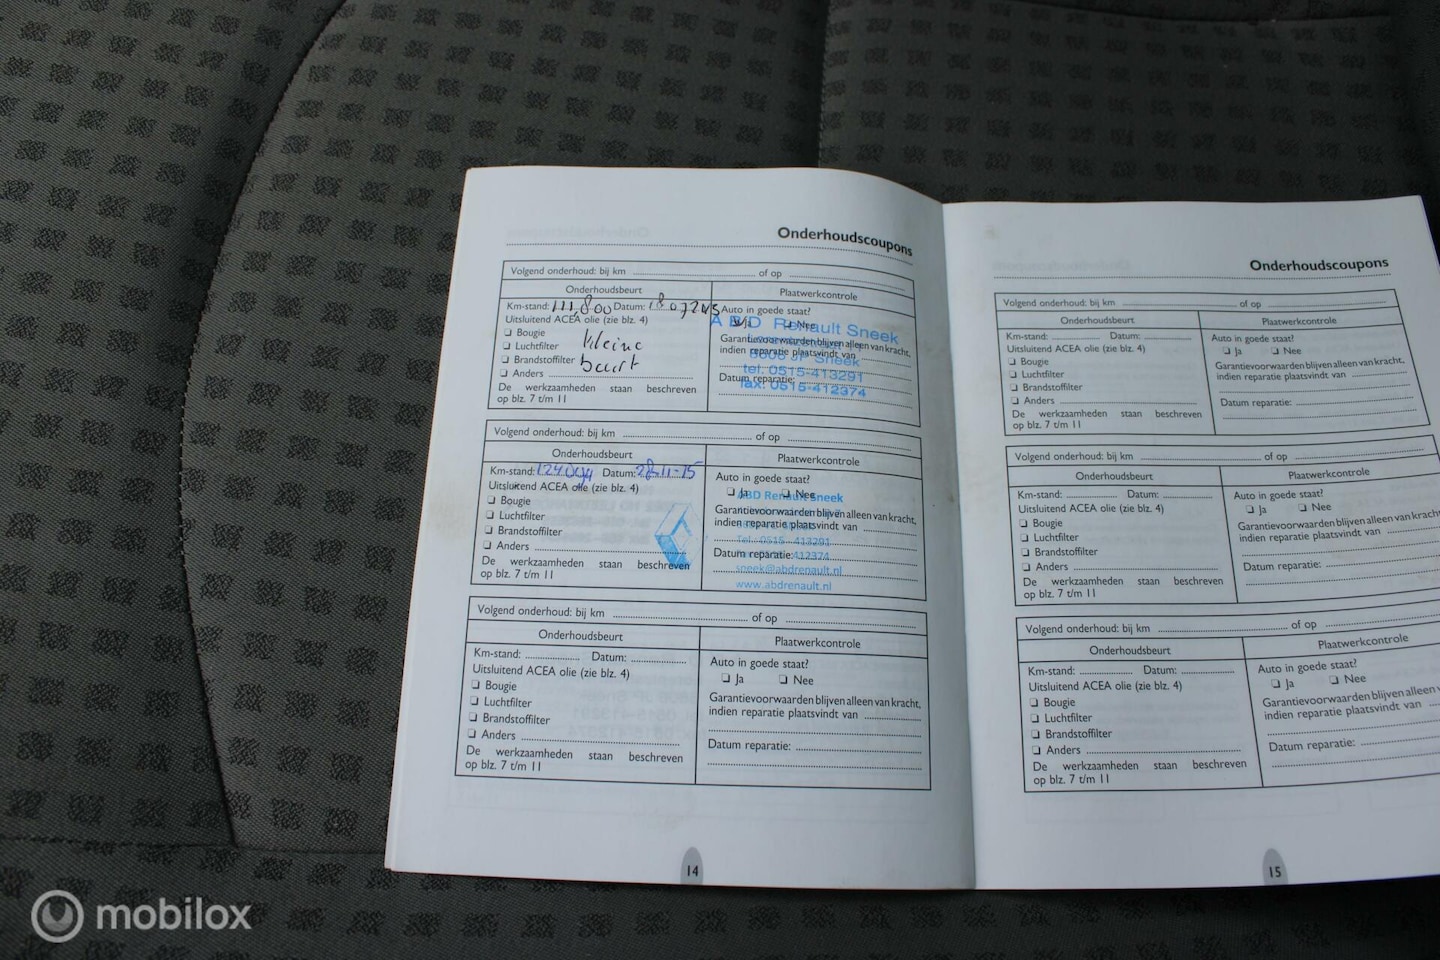 Onderhoudscoupons
Volgend onderhoud: bij km of op
Onderhoudsbeurt
Plaatwerkcontrole
Km-stand: 111,800 Datum:
Auto in goede staat?
Ja Nee
Uitsluitend ACEA olie (zie blz. 4)
Bougie
Luchtfilter
Brandstoffilter
Anders
kleine
beurt
De werkzaamheden staan beschreven
op blz. 7 t/m 11
Garantievoorwaarden blijven alleen van kracht,
indien reparatie plaatsvindt van
Datum reparatie:
ABD Renault Sneek
Sneek
tel. 0515-413291
fax: 0515-412374
Volgend onderhoud: bij km of op
Onderhoudsbeurt
Plaatwerkcontrole
Km-stand: Datum: 28-11-15
Auto in goede staat?
Ja Nee
Uitsluitend ACEA olie (zie blz. 4)
Bougie
Luchtfilter
Brandstoffilter
Anders
De werkzaamheden staan beschreven
op blz. 7 t/m 11
Garantievoorwaarden blijven alleen van kracht,
indien reparatie plaatsvindt van
Datum reparatie:
ABD Renault Sneek
Tel.: 0515 - 413291
412374
sneek@abdrenault.nl
www.abdrenault.nl
Volgend onderhoud: bij km of op
Onderhoudsbeurt
Plaatwerkcontrole
Km-stand: Datum:
Auto in goede staat?
Ja Nee
Uitsluitend ACEA olie (zie blz. 4)
Bougie
Luchtfilter
Brandstoffilter
Anders
De werkzaamheden staan beschreven
op blz. 7 t/m 11
Garantievoorwaarden blijven alleen van kracht,
indien reparatie plaatsvindt van
Datum reparatie:
14
Onderhoudscoupons
Volgend onderhoud: bij km of op
Onderhoudsbeurt
Plaatwerkcontrole
Km-stand: Datum:
Auto in goede staat?
Ja Nee
Uitsluitend ACEA olie (zie blz. 4)
Bougie
Luchtfilter
Brandstoffilter
Anders
De werkzaamheden staan beschreven
op blz. 7 t/m 11
Garantievoorwaarden blijven alleen van kracht,
indien reparatie plaatsvindt van
Datum reparatie:
Volgend onderhoud: bij km of op
Onderhoudsbeurt
Plaatwerkcontrole
Km-stand: Datum:
Auto in goede staat?
Ja Nee
Uitsluitend ACEA olie (zie blz. 4)
Bougie
Luchtfilter
Brandstoffilter
Anders
De werkzaamheden staan beschreven
op blz. 7 t/m 11
Garantievoorwaarden blijven alleen van kracht
indien reparatie plaatsvindt van
Datum reparatie:
Volgend onderhoud: bij km of op
Onderhoudsbeurt
Plaatwerkcontrole
Km-stand: Datum:
Auto in goede staat?
Ja Nee
Uitsluitend ACEA olie (zie blz. 4)
Bougie
Luchtfilter
Brandstoffilter
Anders
De werkzaamheden staan beschreven
op blz. 7 t/m 11
Garantievoorwaarden blijven alleen
indien reparatie plaatsvindt van
Datum reparatie:
15
mobilox